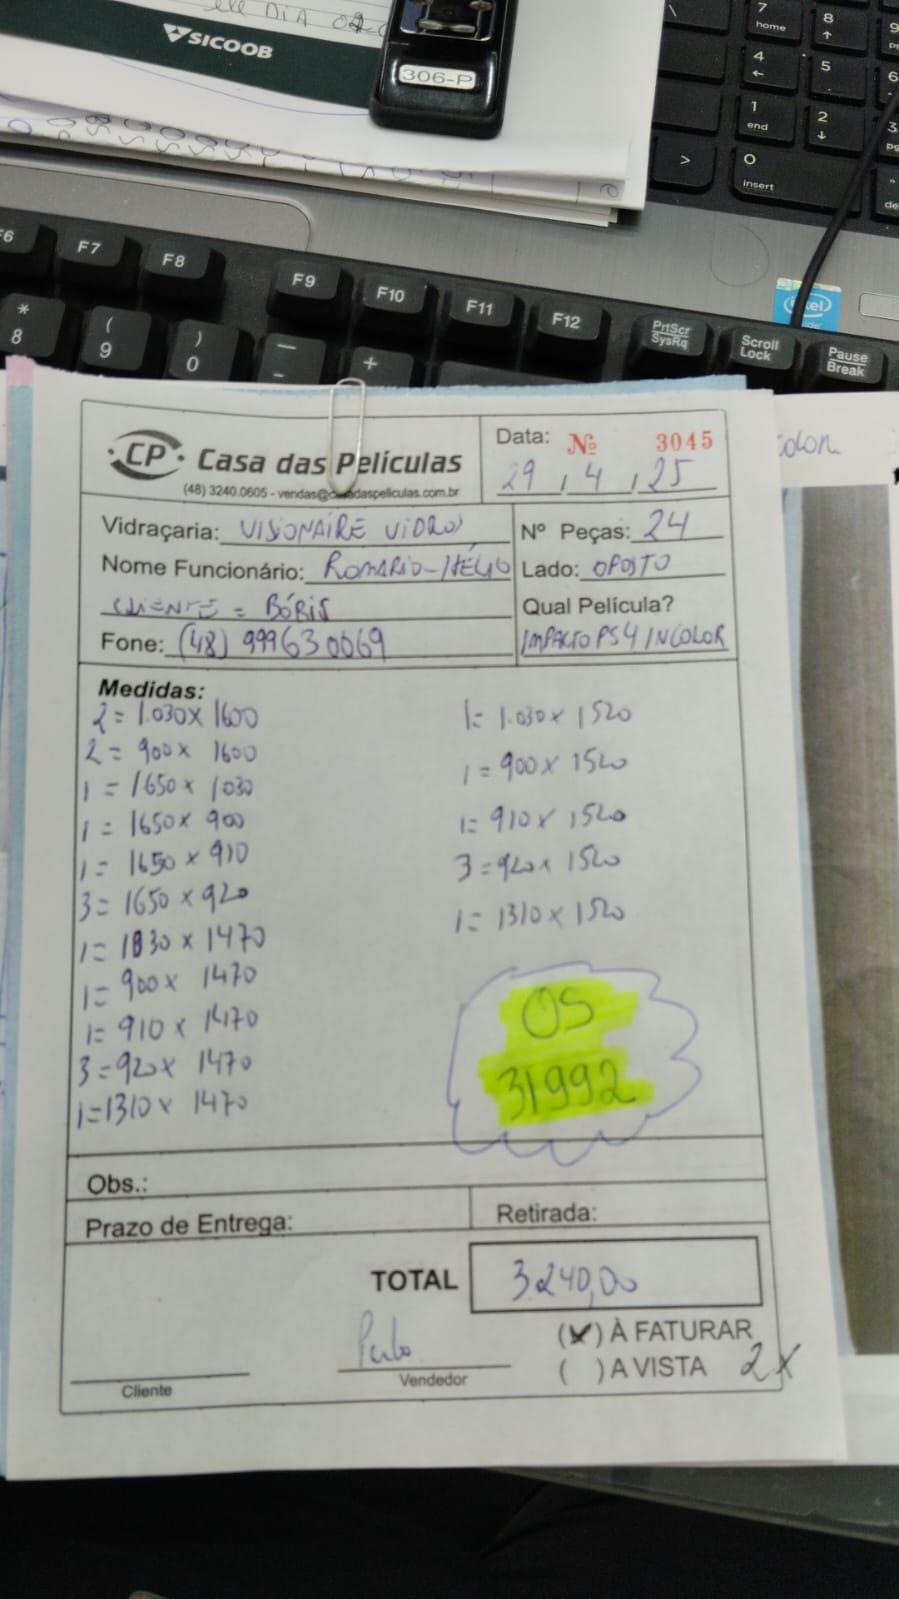 ele DIA
SICOOB
306-P
7 home
8
9
4
5
6
1 end
2
3
>
0 insert
F6
F7
F8
F9
F10
F11
F12
PrtScr SysRq
Scroll Lock
Pause Break
* 8
( 9
) 0
— -
+
intel
CP Casa das Películas
(48) 3240.0605 - vendas@casadaspeliculas.com.br
Data: Nº 3045
29 / 4 / 25
Vidraçaria: VISIONAIRE VIDROS
Nº Peças: 24
Nome Funcionário: ROMARIO-HÉLIO
Lado: OPOSTO
CLIENTE = BÓRIS
Qual Película?
Fone: (48) 999630069
IMPACTO PS4 INCOLOR
Medidas:
2 = 1.030 x 1600
2 = 900 x 1600
1 = 1650 x 1030
1 = 1650 x 900
1 = 1650 x 910
3 = 1650 x 920
1 = 1030 x 1470
1 = 900 x 1470
1 = 910 x 1470
3 = 920 x 1470
1 = 1310 x 1470
1 = 1.030 x 1520
1 = 900 x 1520
1 = 910 x 1520
3 = 920 x 1520
1 = 1310 x 1520
OS
31992
Obs.:
Prazo de Entrega:
Retirada:
TOTAL 3.240,00
(X) À FATURAR
( ) A VISTA 2x
Cliente
Vendedor